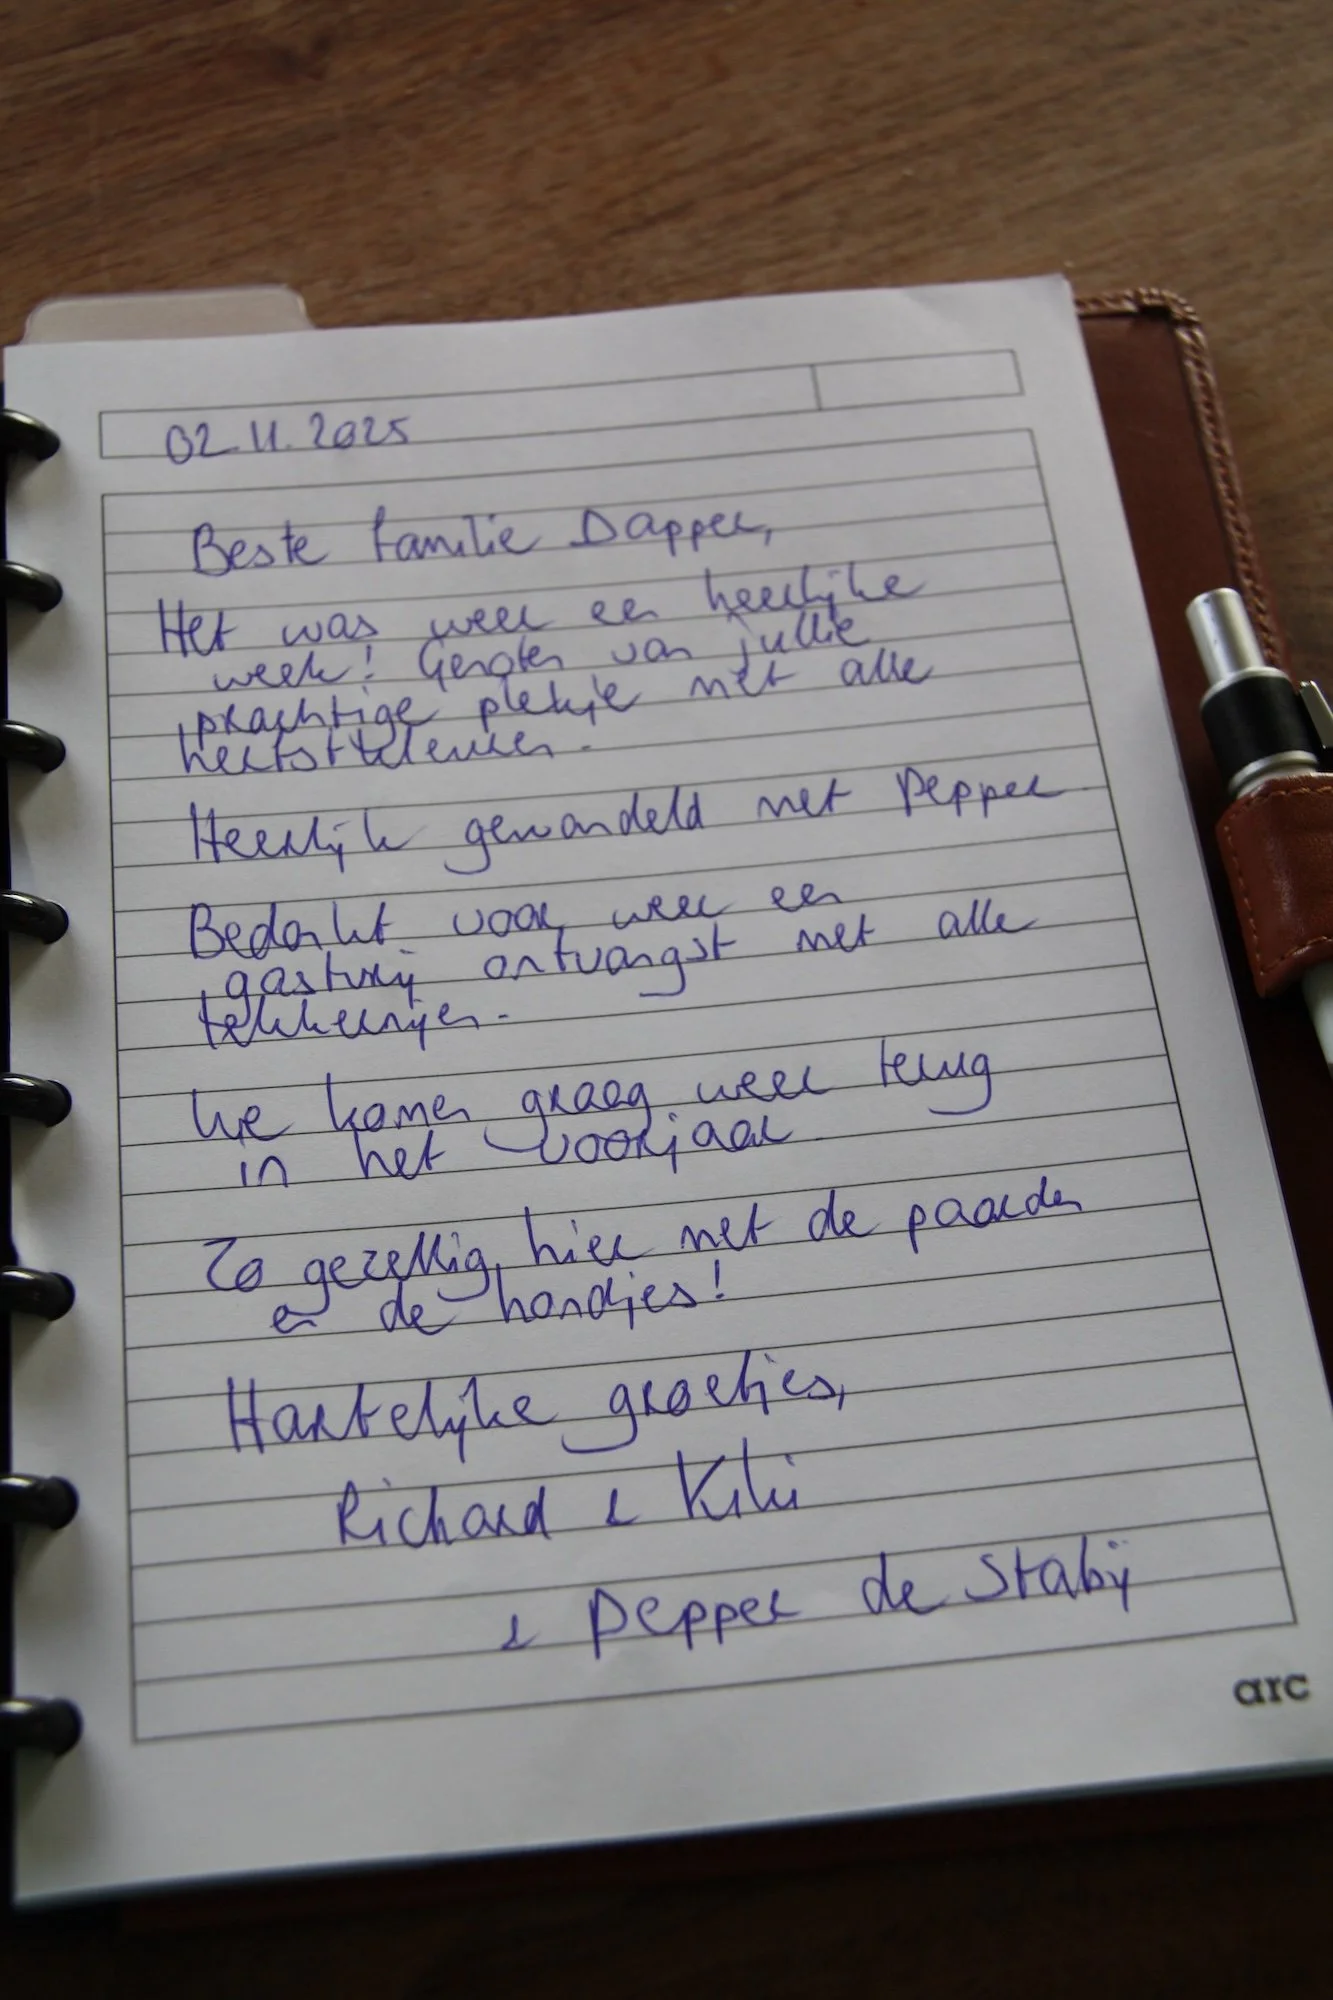 02.11.2025
Beste familie Dapper,
Het was weer een heerlijke
week! Genoten van jullie
prachtige plekje met alle
herfstkleuren.
Heerlijk gewandeld met Pepper
Bedankt voor weer een
gastvrij ontvangst met alle
lekkernijen.
We komen graag weer terug
in het voorjaar
Zo gezellig hier met de paarden
en de hondjes!
Hartelijke groetjes,
Richard & Kiki
& Pepper de Stabij
arc